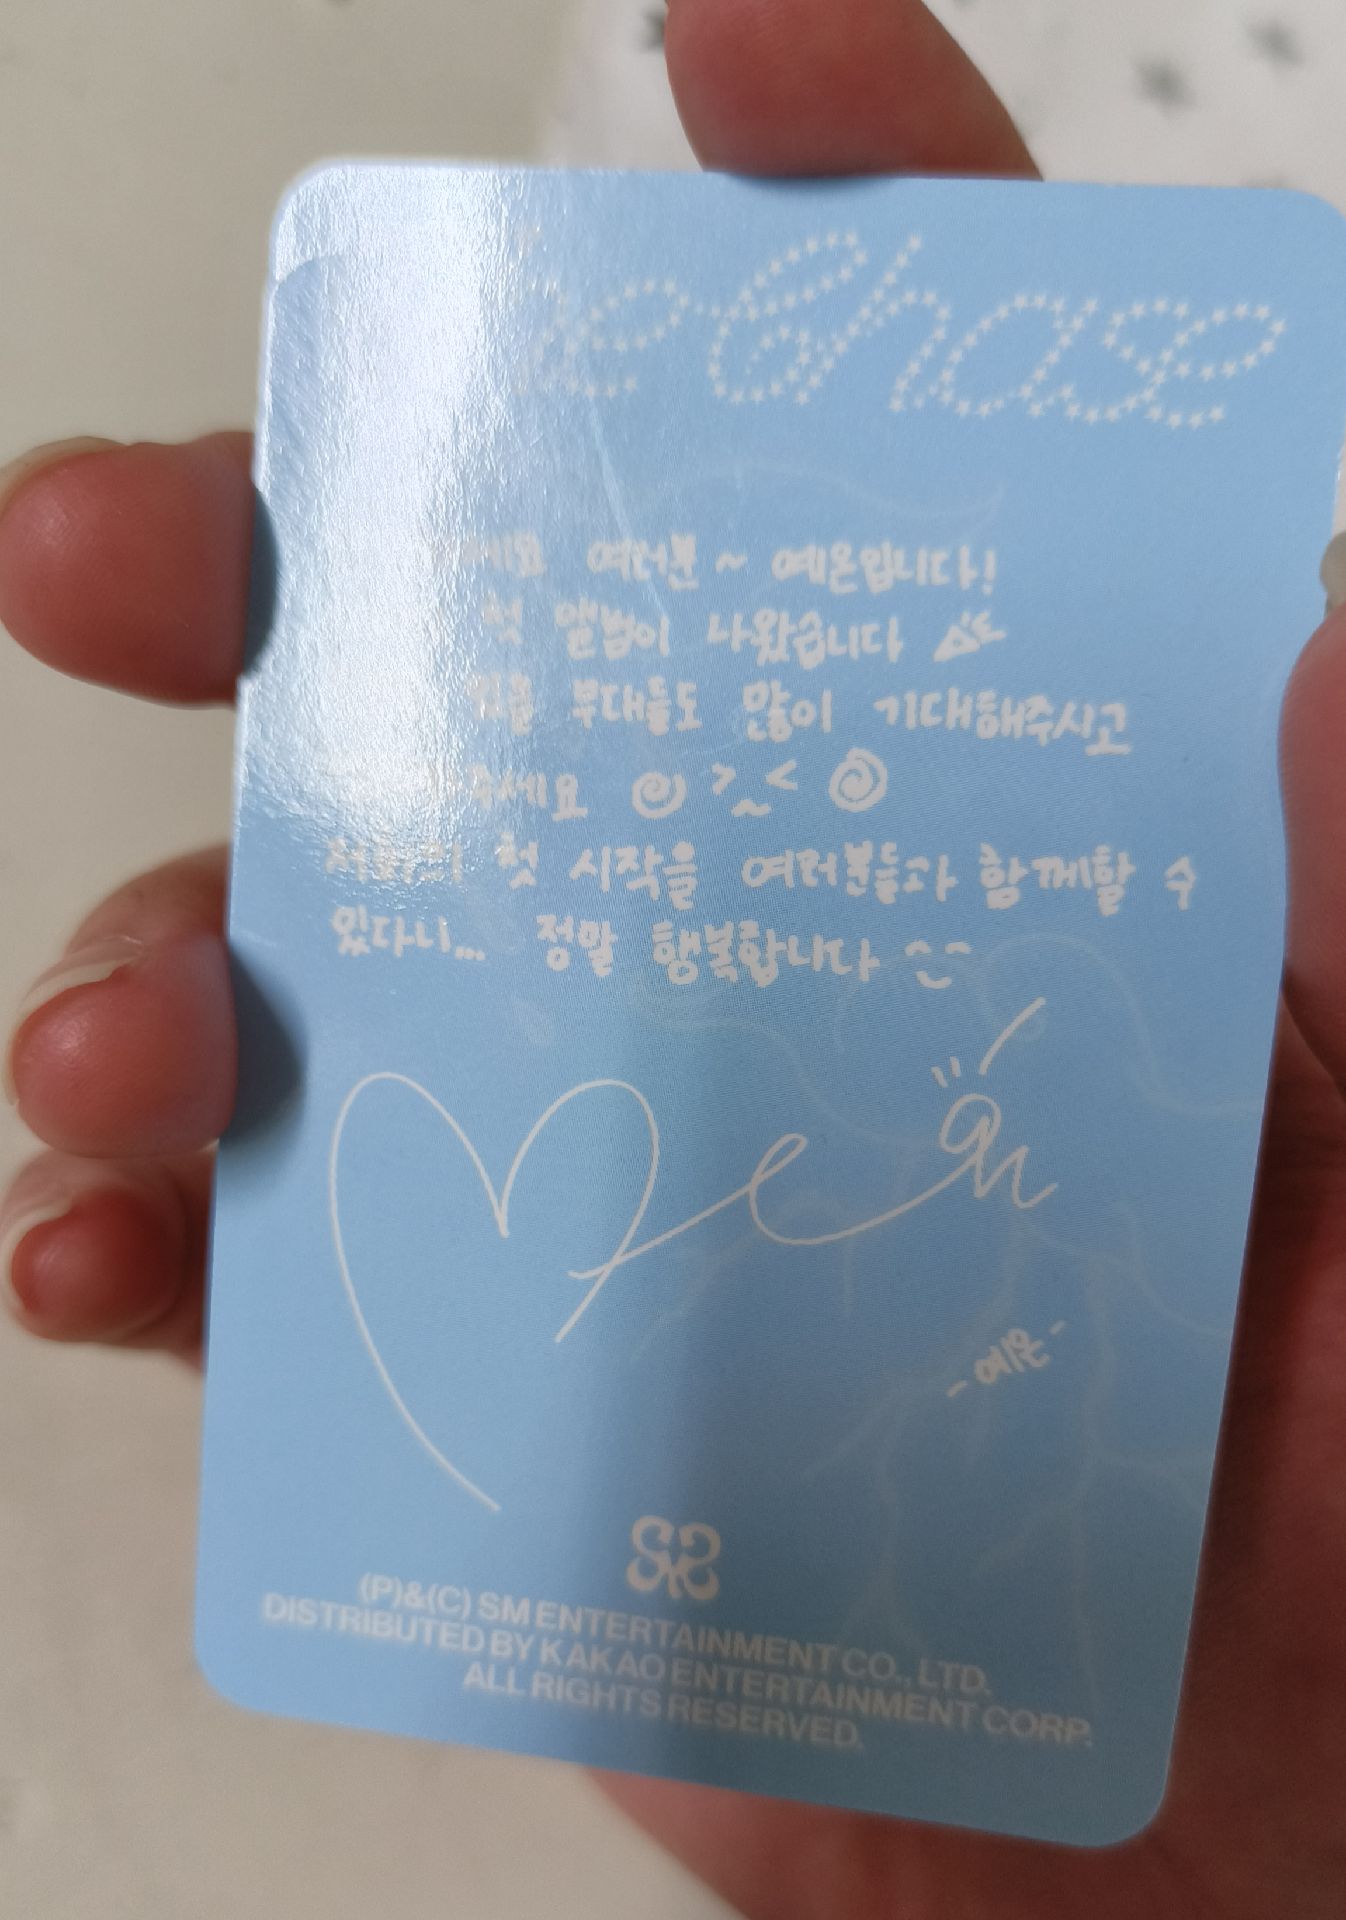 he Chase
여러분 ~ 예온입니다!
첫 앨범이 나왔습니다
있을 부대들도 많이 기대해주시고
주세요 >~<
저희의 첫 시작을 여러분들과 함께할 수
있다니... 정말 행복합니다 ^_^
Ye:on
-예온-
(P)&(C) SM ENTERTAINMENT CO., LTD.
DISTRIBUTED BY KAKAO ENTERTAINMENT CORP.
ALL RIGHTS RESERVED.